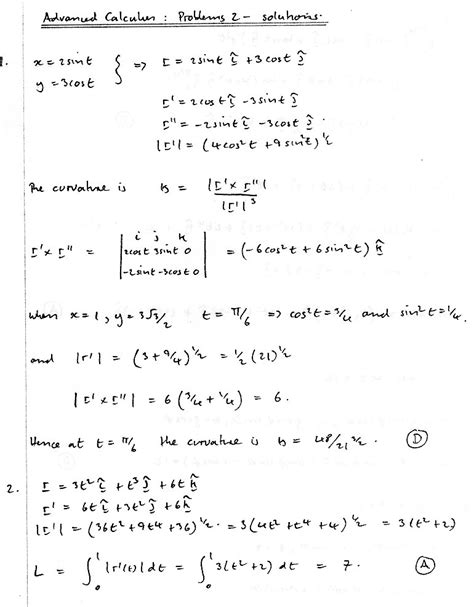 Advanced Calculus : Problems 2 - solutions.
1. x = 2sint
y = 3cost } => r = 2sint î + 3cost ĵ
r' = 2cost î - 3sint ĵ
r'' = -2sint î - 3cost ĵ.
|r'| = (4cos²t + 9sin²t)^½
The curvature is κ = |r' x r''| / |r'|³
r' x r'' = | i j k |
| 2cost 3sint 0 | = (-6cos²t + 6sin²t) k̂
| -2sint -3cost 0 |
when x = 1, y = 3√3/2 t = π/6 => cos²t = 3/4 and sin²t = 1/4.
and |r'| = (3 + 9/4)^½ = ½(21)^½
|r' x r''| = 6(3/4 + 1/4) = 6.
Hence at t = π/6 the curvature is κ = 48/21^3/2. (D)
2. r = 3t² î + t³ ĵ + 6t k̂
r' = 6t î + 3t² ĵ + 6k̂
|r'| = (36t² + 9t⁴ + 36)^½ = 3(4t² + t⁴ + 4)^½ = 3(t² + 2)
L = ∫₀¹ |r'(t)| dt = ∫₀¹ 3(t² + 2) dt = 7. (A)